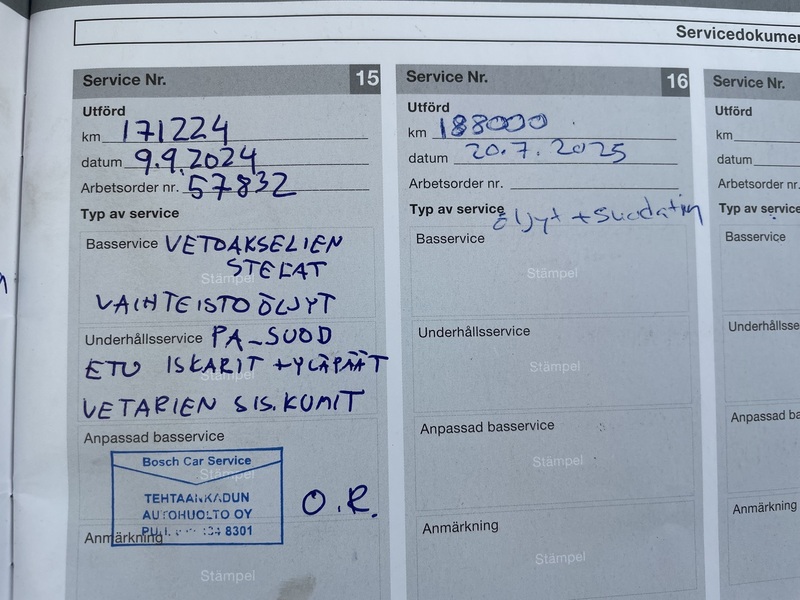 Servicedokumen
Service Nr. 15
Utförd
km 171224
datum 9.9.2024
Arbetsorder nr. 57832
Typ av service
Basservice VETOAKSELIEN
STEFAT
Stämpel
VAIHTEISTO ÖLJYT
Underhållsservice PA-SUOD
ETU ISKARIT +YLÄPÄÄT
Stämpel
VETARIEN SIS.KUMIT
Anpassad basservice
Bosch Car Service
Stämpel
TEHTAANKADUN
AUTOHUOLTO OY
8301
O.R.
Anmärkning
Stämpel
Service Nr. 16
Utförd
km 188000
datum 20.7.2025
Arbetsorder nr.
Typ av service öljyt + suodatin
Basservice
Stämpel
Underhållsservice
Stämpel
Anpassad basservice
Stämpel
Anmärkning
Stämpel
Service Nr.
Utförd
km
datum
Arbetsorder nr.
Typ av service
Basservice
Underhållsse
Anpassad ba
Anmärkning